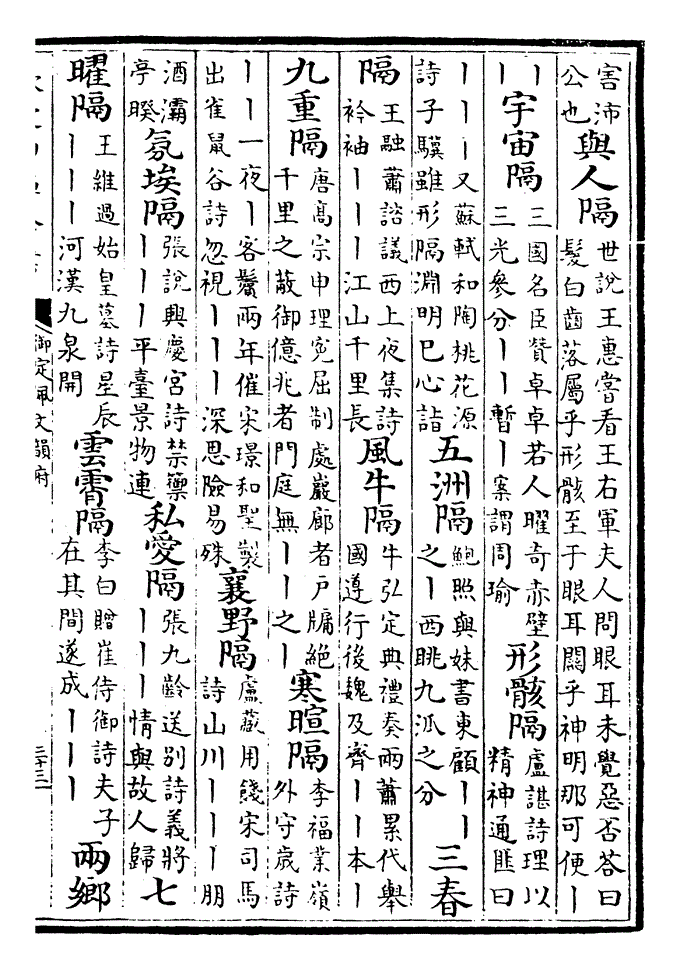 害沛公也與人隔世說王惠嘗看王右軍夫人問眼耳未覺惡否荅曰髮白齒落屬乎形骸至于眼耳關乎神明那可便｜
｜｜宇宙隔三國名臣贊卓卓若人曜奇赤壁三光參分｜｜暫｜案謂周瑜形骸隔盧諶詩理以精神通匪曰
｜｜｜又蘇軾和陶桃花源詩子驥雖形隔淵明已心詣五洲隔鮑照與妹書東顧｜｜之｜西眺九泒之分三春
隔王融蕭諮議西上夜集詩衿袖｜｜｜江山千里長風牛隔牛弘定典禮奏兩蕭累代舉國遵行後魏及齊｜｜本｜
九重隔唐髙宗申理寃屈制處巖廊者戸牖絶千里之蔽御億兆者門庭無｜｜之｜寒暄隔李福業嶺外守歲詩
｜｜一夜｜客鬢兩年催宋璟和聖製出雀鼠谷詩忽視｜｜｜深思險易殊襄野隔盧藏用餞宋司馬詩山川｜｜｜朋
酒灞亭暌氛埃隔張說興慶宮詩禁籞｜｜｜平臺景物連私愛隔張九齡送別詩義將｜｜｜情與故人歸七
曜隔王維過始皇墓詩星辰｜｜｜河漢九泉開雲霄隔李白贈崔侍御詩夫子在其間遂成｜｜｜兩鄉
御定佩文韻府
二十三